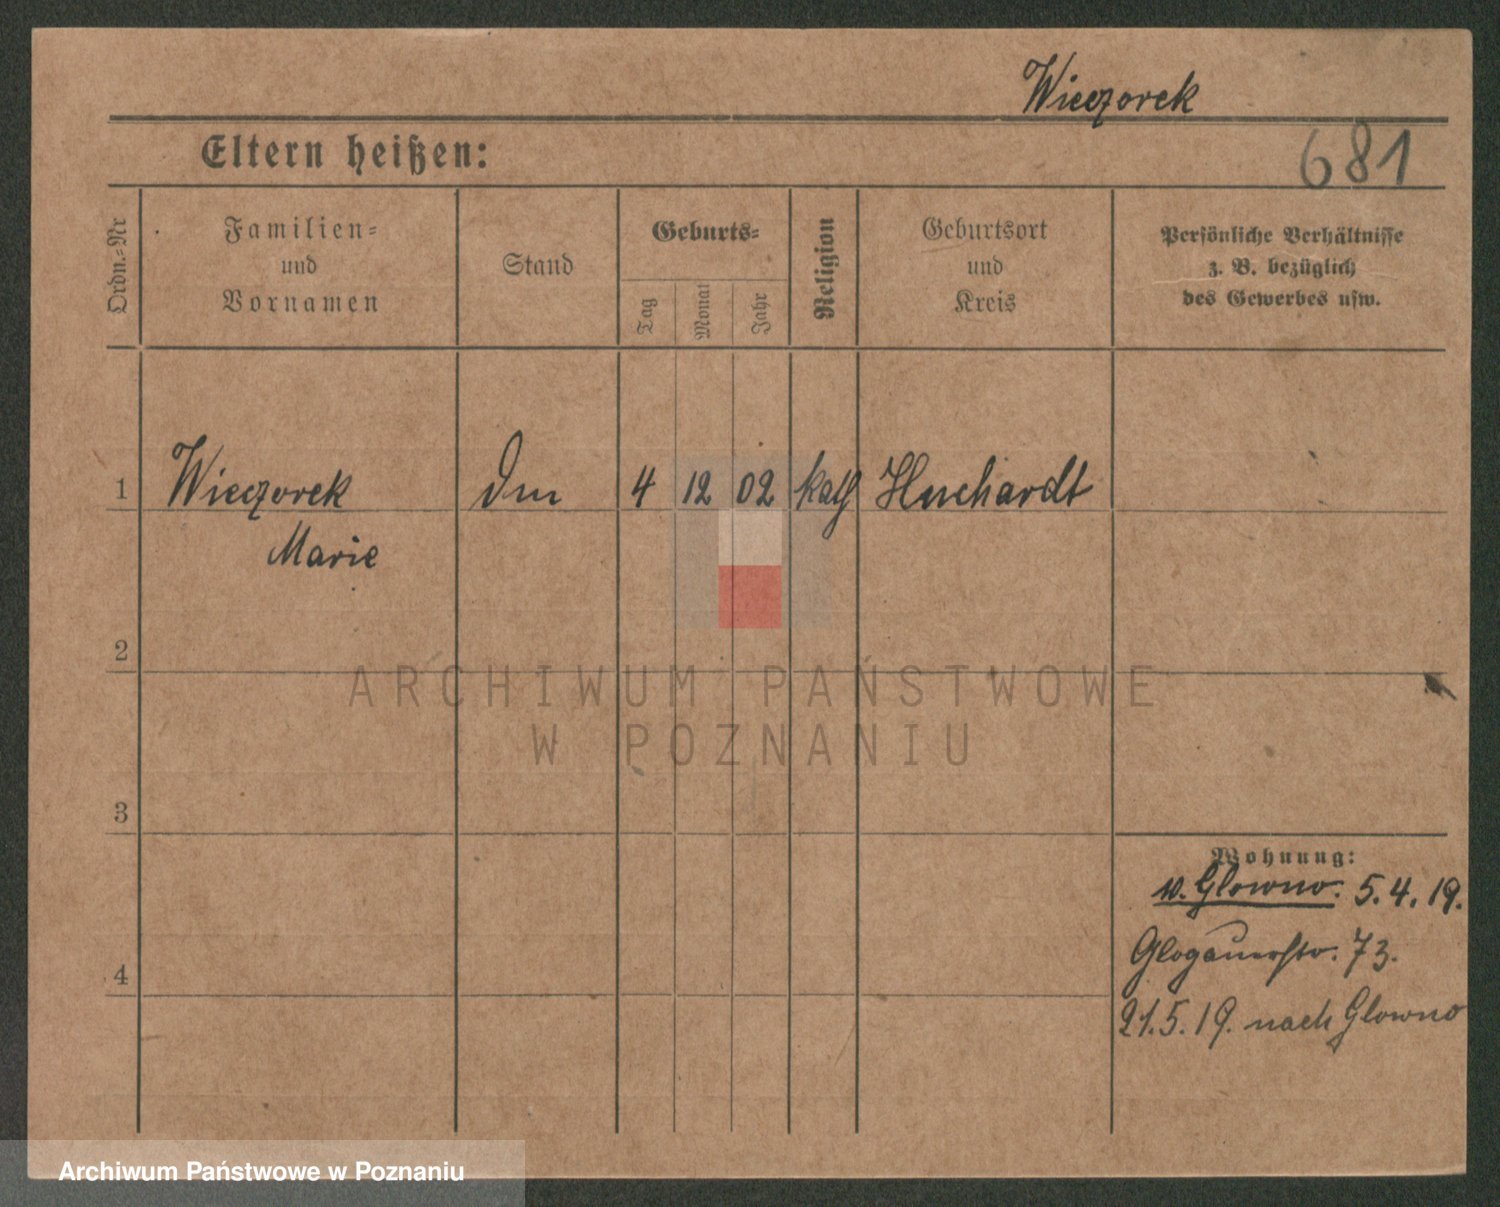 Wieczorek
Eltern heißen:
681
Ordn.-Nr
Familien-
und
Vornamen
Stand
Geburts-
Tag
Monat
Jahr
Religion
Geburtsort
und
Kreis
Persönliche Verhältnisse
z. B. bezüglich
des Gewerbes usw.
1 Wieczorek 4 12 02 kath
Marie
2
3
4
Wohnung:
v. Glowno. 5.4.19.
Glogauerstr. 73.
21.5.19. nach Glowno
ARCHIWUM PAŃSTWOWE
W POZNANIU
Archiwum Państwowe w Poznaniu